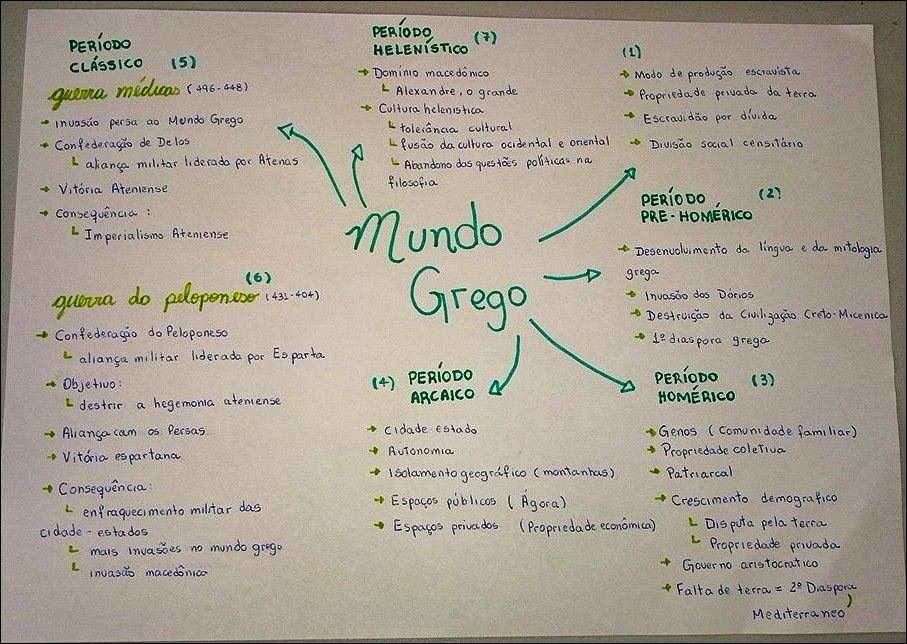 Mundo
Grego
(1)
Modo de produção escravista
Propriedade privada da terra
Escravidão por dívida
Divisão social censitário
PERÍODO (2)
PRE-HOMÉRICO
Desenvolvimento da língua e da mitologia
grega
Invasão dos Dórios
Destruição da Civilização Creto-Micenica
1º diaspora grega
PERÍODO (3)
HOMÉRICO
Genos (Comunidade familiar)
Propriedade coletiva
Patriarcal
Crescimento demografico
Disputa pela terra
Propriedade privada
Governo aristocratico
Falta de terra = 2º Diaspora
Mediterraneo)
(4) PERÍODO
ARCAICO
Cidade estado
Autonomia
Isolamento geográfico (montanhas)
Espaços públicos (Ágora)
Espaços privados (Propriedade econômica)
PERÍODO
CLÁSSICO (5)
guerra médicas (496-448)
Invasão persa ao Mundo Grego
Confederação de Delos
aliança militar liderada por Atenas
Vitória Ateniense
Consequência :
Imperialismo Ateniense
(6)
guerra do peloponeso (431-404)
Confederação do Peloponeso
aliança militar liderada por Esparta
Objetivo:
destrir a hegemonia ateniense
Aliança com os Persas
Vitória espartana
Consequência:
enfraquecimento militar das
cidade-estados
mais invasões no mundo grego
invasão macedônica
PERÍODO (7)
HELENÍSTICO
Domínio macedônico
Alexandre, o grande
Cultura helenistica
tolerância cultural
fusão da cultura ocidental e oriental
Abandono das questões políticas na
filosofia